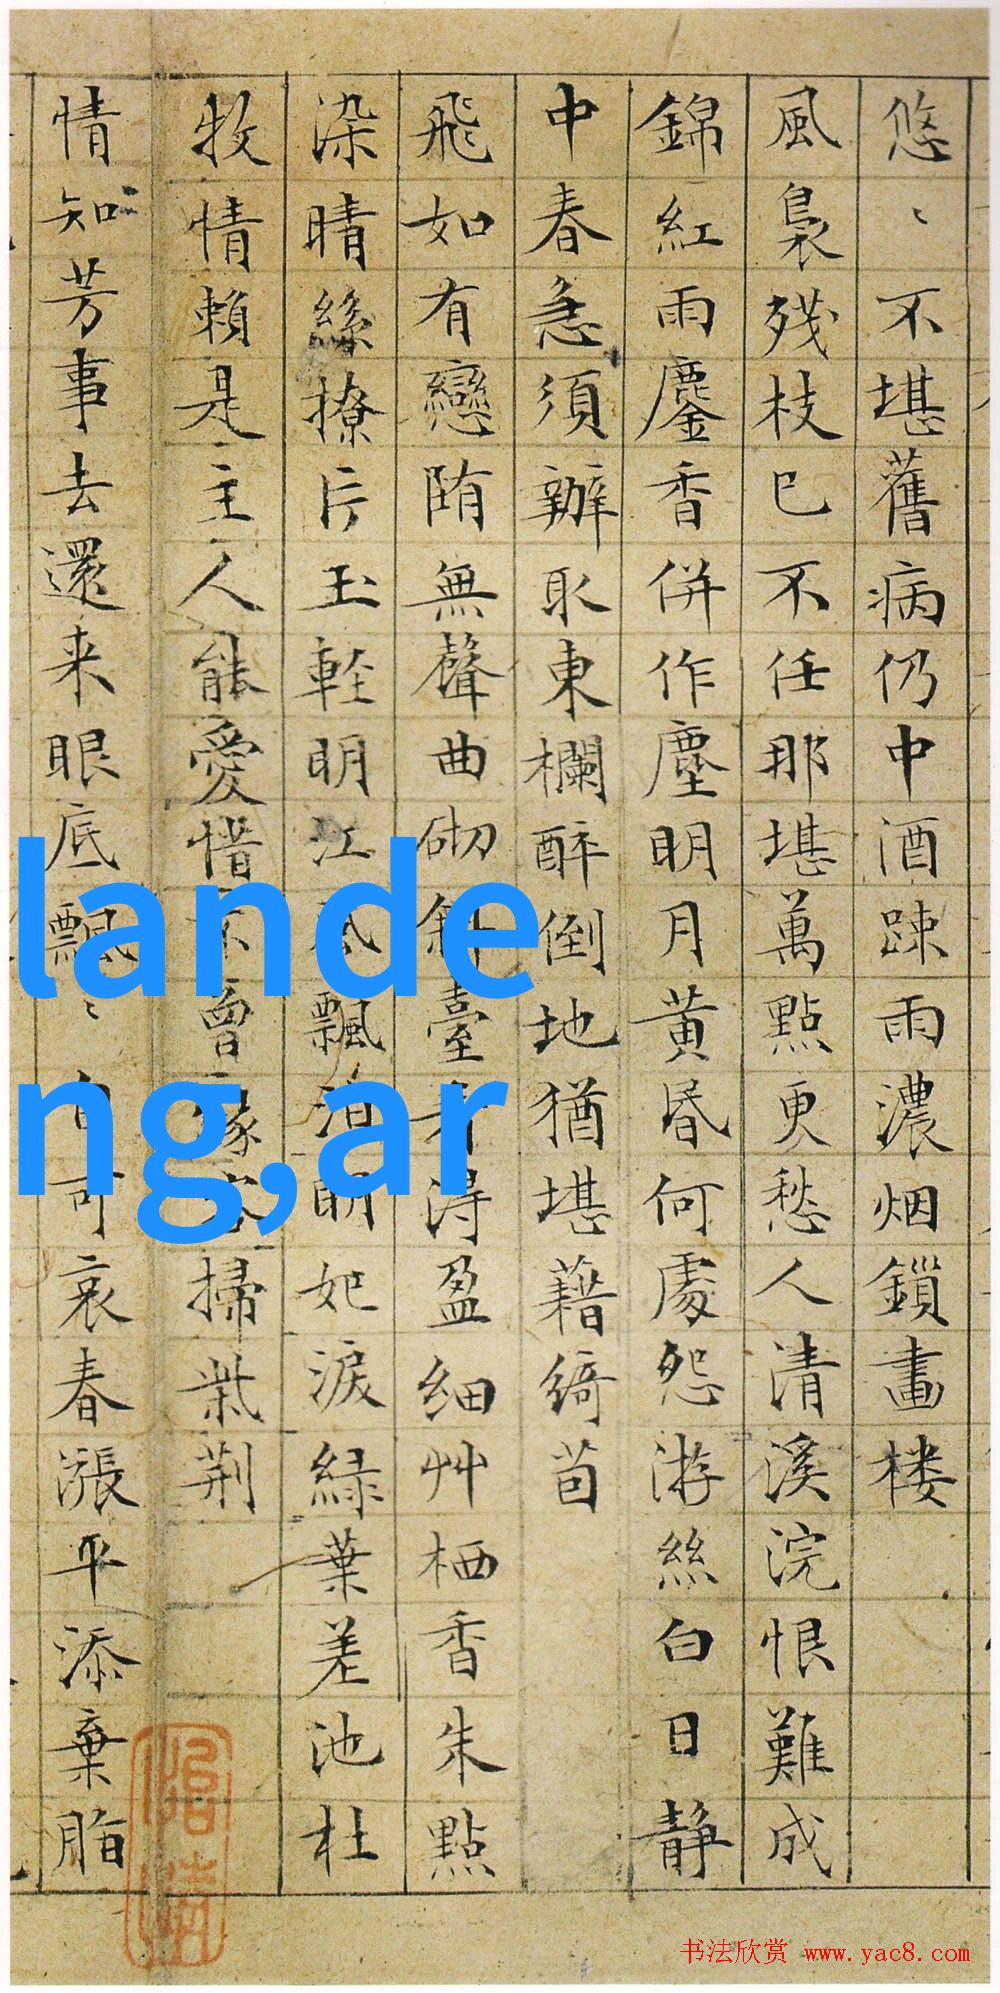 悠〻不堪舊病仍中酒踈雨濃烟鎖畫楼
風裊残枝已不任那堪萬點更愁人清溪浣恨難成
錦紅雨鏖香併作塵明月黄昏何處怨游絲白日静
中春急須辦取東欄醉倒地猶堪藉綺茵
飛如有戀陏無聲曲砌斜臺看得盈細艸栖香朱點
染晴絲撩片玉輕明江風飄泊明妃淚緑葉差池杜
牧情賴是主人能愛惜不曾緣客掃紫荆
情知芳事去還来眼底飄〻自可哀春漲平添棄脂
lande
ng,ar
书法欣赏 www.yac8.com